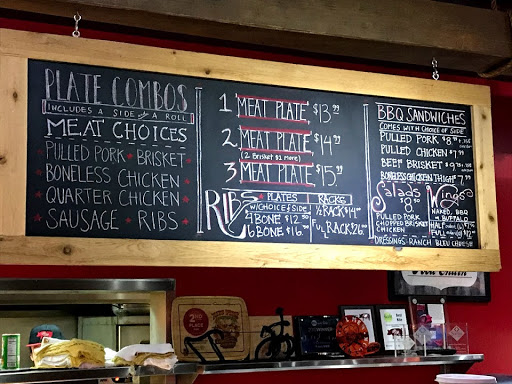 PLATE COMBOS
INCLUDES A SIDE & A ROLL
MEAT CHOICES
PULLED PORK * BRISKET
BONELESS CHICKEN
QUARTER CHICKEN
SAUSAGE * RIBS
1 MEAT PLATE $13.99
2 MEAT PLATE $14.99
(2 Brisket $1 more)
3 MEAT PLATE $15.99
RIBS
PLATES
W/CHOICE of SIDE
4 BONE $12.50
6 BONE $16.
RACKS
1/2 RACK $14
FULL RACK $26
BBQ SANDWICHES
COMES WITH CHOICE OF SIDE
PULLED PORK $8
PULLED CHICKEN $7
BEEF BRISKET $9
BONELESS CHICKEN THIGH
Salads
PULLED PORK
CHOPPED BRISKET
CHICKEN
Wings
NAKED, BBQ
or BUFFALO
HALF
FULL
DRESSINGS: RANCH BLEU CHEESE
2ND
PLACE